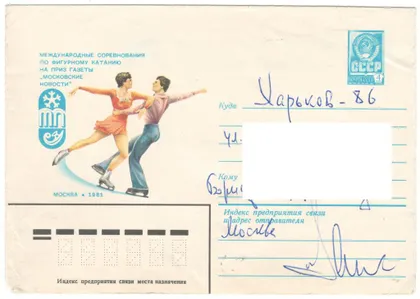 МЕЖДУНАРОДНЫЕ СОРЕВНОВАНИЯ
ПО ФИГУРНОМУ КАТАНИЮ
НА ПРИЗ ГАЗЕТЫ
„МОСКОВСКИЕ
НОВОСТИ"
МОСКВА • 1983
СССР
Куда Харьков - 86
ул.
Кому
Индекс предприятия связи
и адрес отправителя
Москва
Индекс предприятия связи места назначения